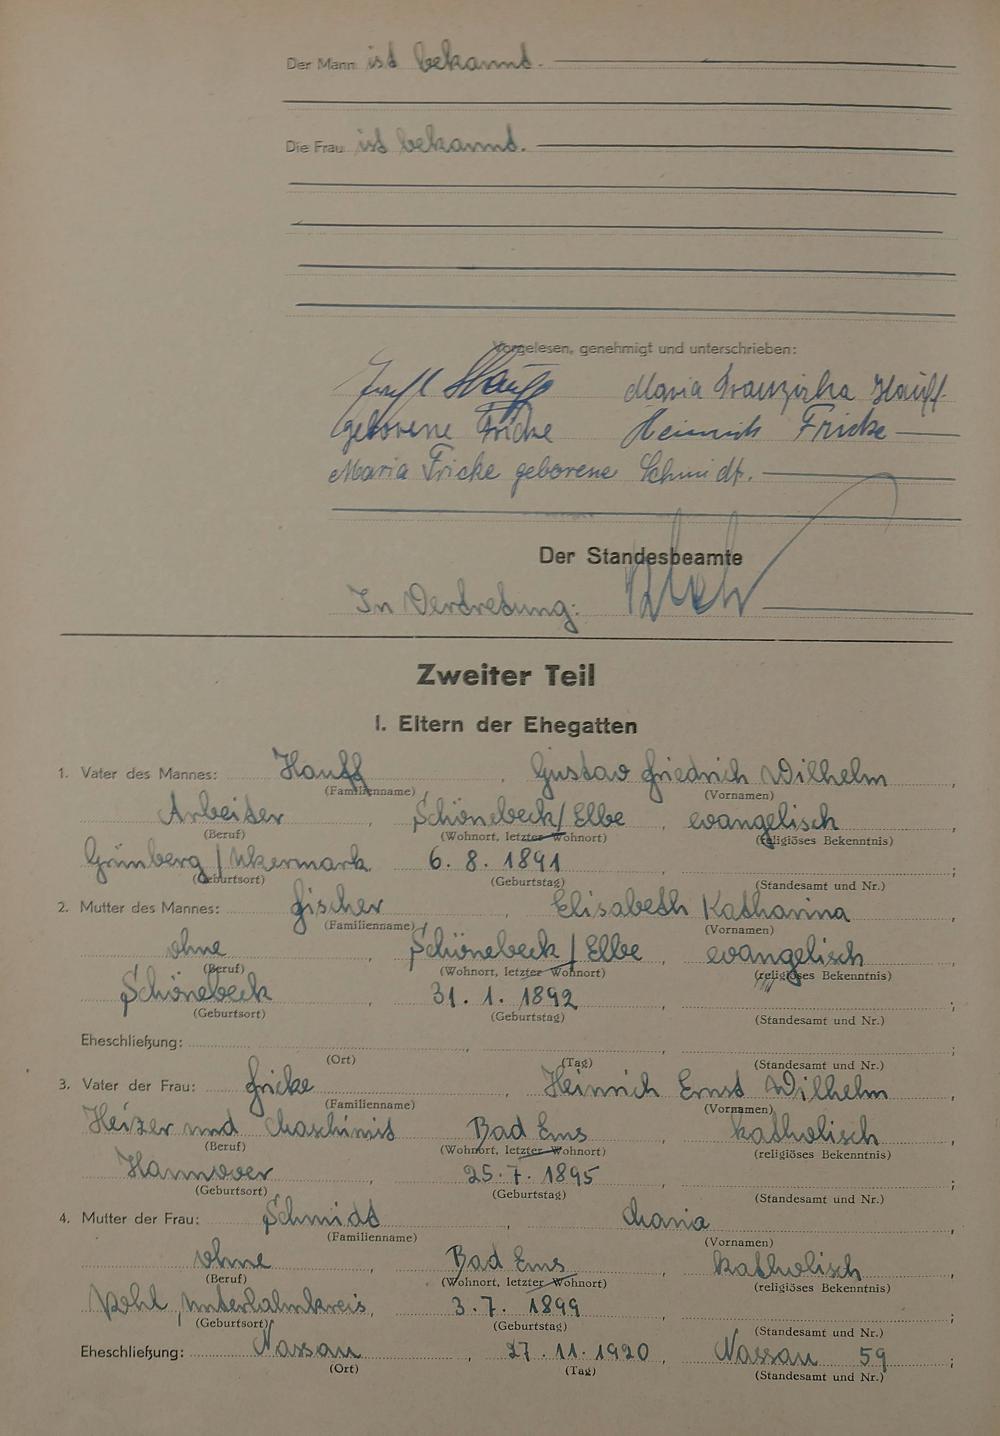 Der Mann ist bekannt.
Die Frau ist bekannt.
Vorgelesen, genehmigt und unterschrieben:
Hauff Maria Franziska Hauff
geborene Fricke Heinrich Fricke
Maria Fricke geborene Schmidt.
Der Standesbeamte
In Vertretung:
Zweiter Teil
I. Eltern der Ehegatten
1. Vater des Mannes: Hauff, Gustav Friedrich Wilhelm,
(Familienname) (Vornamen)
Arbeiter, Schönebeck/Elbe, evangelisch,
(Beruf) (Wohnort, letzter Wohnort) (religiöses Bekenntnis)
Grünberg/Ukermark, 6. 8. 1891, ;
(Geburtsort) (Geburtstag) (Standesamt und Nr.)
2. Mutter des Mannes: Fischer, Elisabeth Katharina,
(Familienname) (Vornamen)
ohne, Schönebeck/Elbe, evangelisch,
(Beruf) (Wohnort, letzter Wohnort) (religiöses Bekenntnis)
Schönebeck, 31. 1. 1892, ;
(Geburtsort) (Geburtstag) (Standesamt und Nr.)
Eheschließung: , , ;
(Ort) (Tag) (Standesamt und Nr.)
3. Vater der Frau: Fricke, Heinrich Ernst Wilhelm,
(Familienname) (Vornamen)
Heizer und Maschinist, Bad Ems, katholisch,
(Beruf) (Wohnort, letzter Wohnort) (religiöses Bekenntnis)
Hannover, 25. 7. 1895, ;
(Geburtsort) (Geburtstag) (Standesamt und Nr.)
4. Mutter der Frau: Schmidt, Maria,
(Familienname) (Vornamen)
ohne, Bad Ems, katholisch,
(Beruf) (Wohnort, letzter Wohnort) (religiöses Bekenntnis)
Pohl, Unterlahnkreis, 3. 7. 1899, ;
(Geburtsort) (Geburtstag) (Standesamt und Nr.)
Eheschließung: Nassau, 27. 11. 1920, Nassau 59;
(Ort) (Tag) (Standesamt und Nr.)